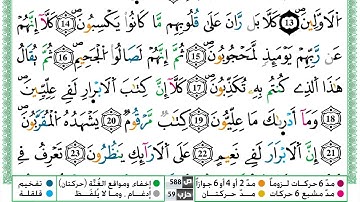 ٱلْأَوَّلِينَ ⑬ كَلَّا ۖ بَلْ ۜ رَانَ عَلَىٰ قُلُوبِهِم مَّا كَانُوا۟ يَكْسِبُونَ ⑭ كَلَّآ إِنَّهُمْ
عَن رَّبِّهِمْ يَوْمَئِذٍ لَّمَحْجُوبُونَ ⑮ ثُمَّ إِنَّهُمْ لَصَالُوا۟ ٱلْجَحِيمِ ⑯ ثُمَّ يُقَالُ
هَٰذَا ٱلَّذِى كُنتُم بِهِۦ تُكَذِّبُونَ ⑰ كَلَّآ إِنَّ كِتَٰبَ ٱلْأَبْرَارِ لَفِى عِلِّيِّينَ
⑱ وَمَآ أَدْرَىٰكَ مَا عِلِّيُّونَ ⑲ كِتَٰبٌ مَّرْقُومٌ ⑳ يَشْهَدُهُ ٱلْمُقَرَّبُونَ
㉑ إِنَّ ٱلْأَبْرَارَ لَفِى نَعِيمٍ ㉒ عَلَى ٱلْأَرَآئِكِ يَنظُرُونَ ㉓ تَعْرِفُ فِى
مدّ 6 حركات لزوماً مدّ 2 أو 4 أو 6 جوازاً إخفاء، ومواقع الغُنَّة (حركتان) تفخيم
مدّ مشبع 6 حركات مدّ حركتان إدغام، وما لا يُلفَظ قلقلة
ص 588
حزب 59